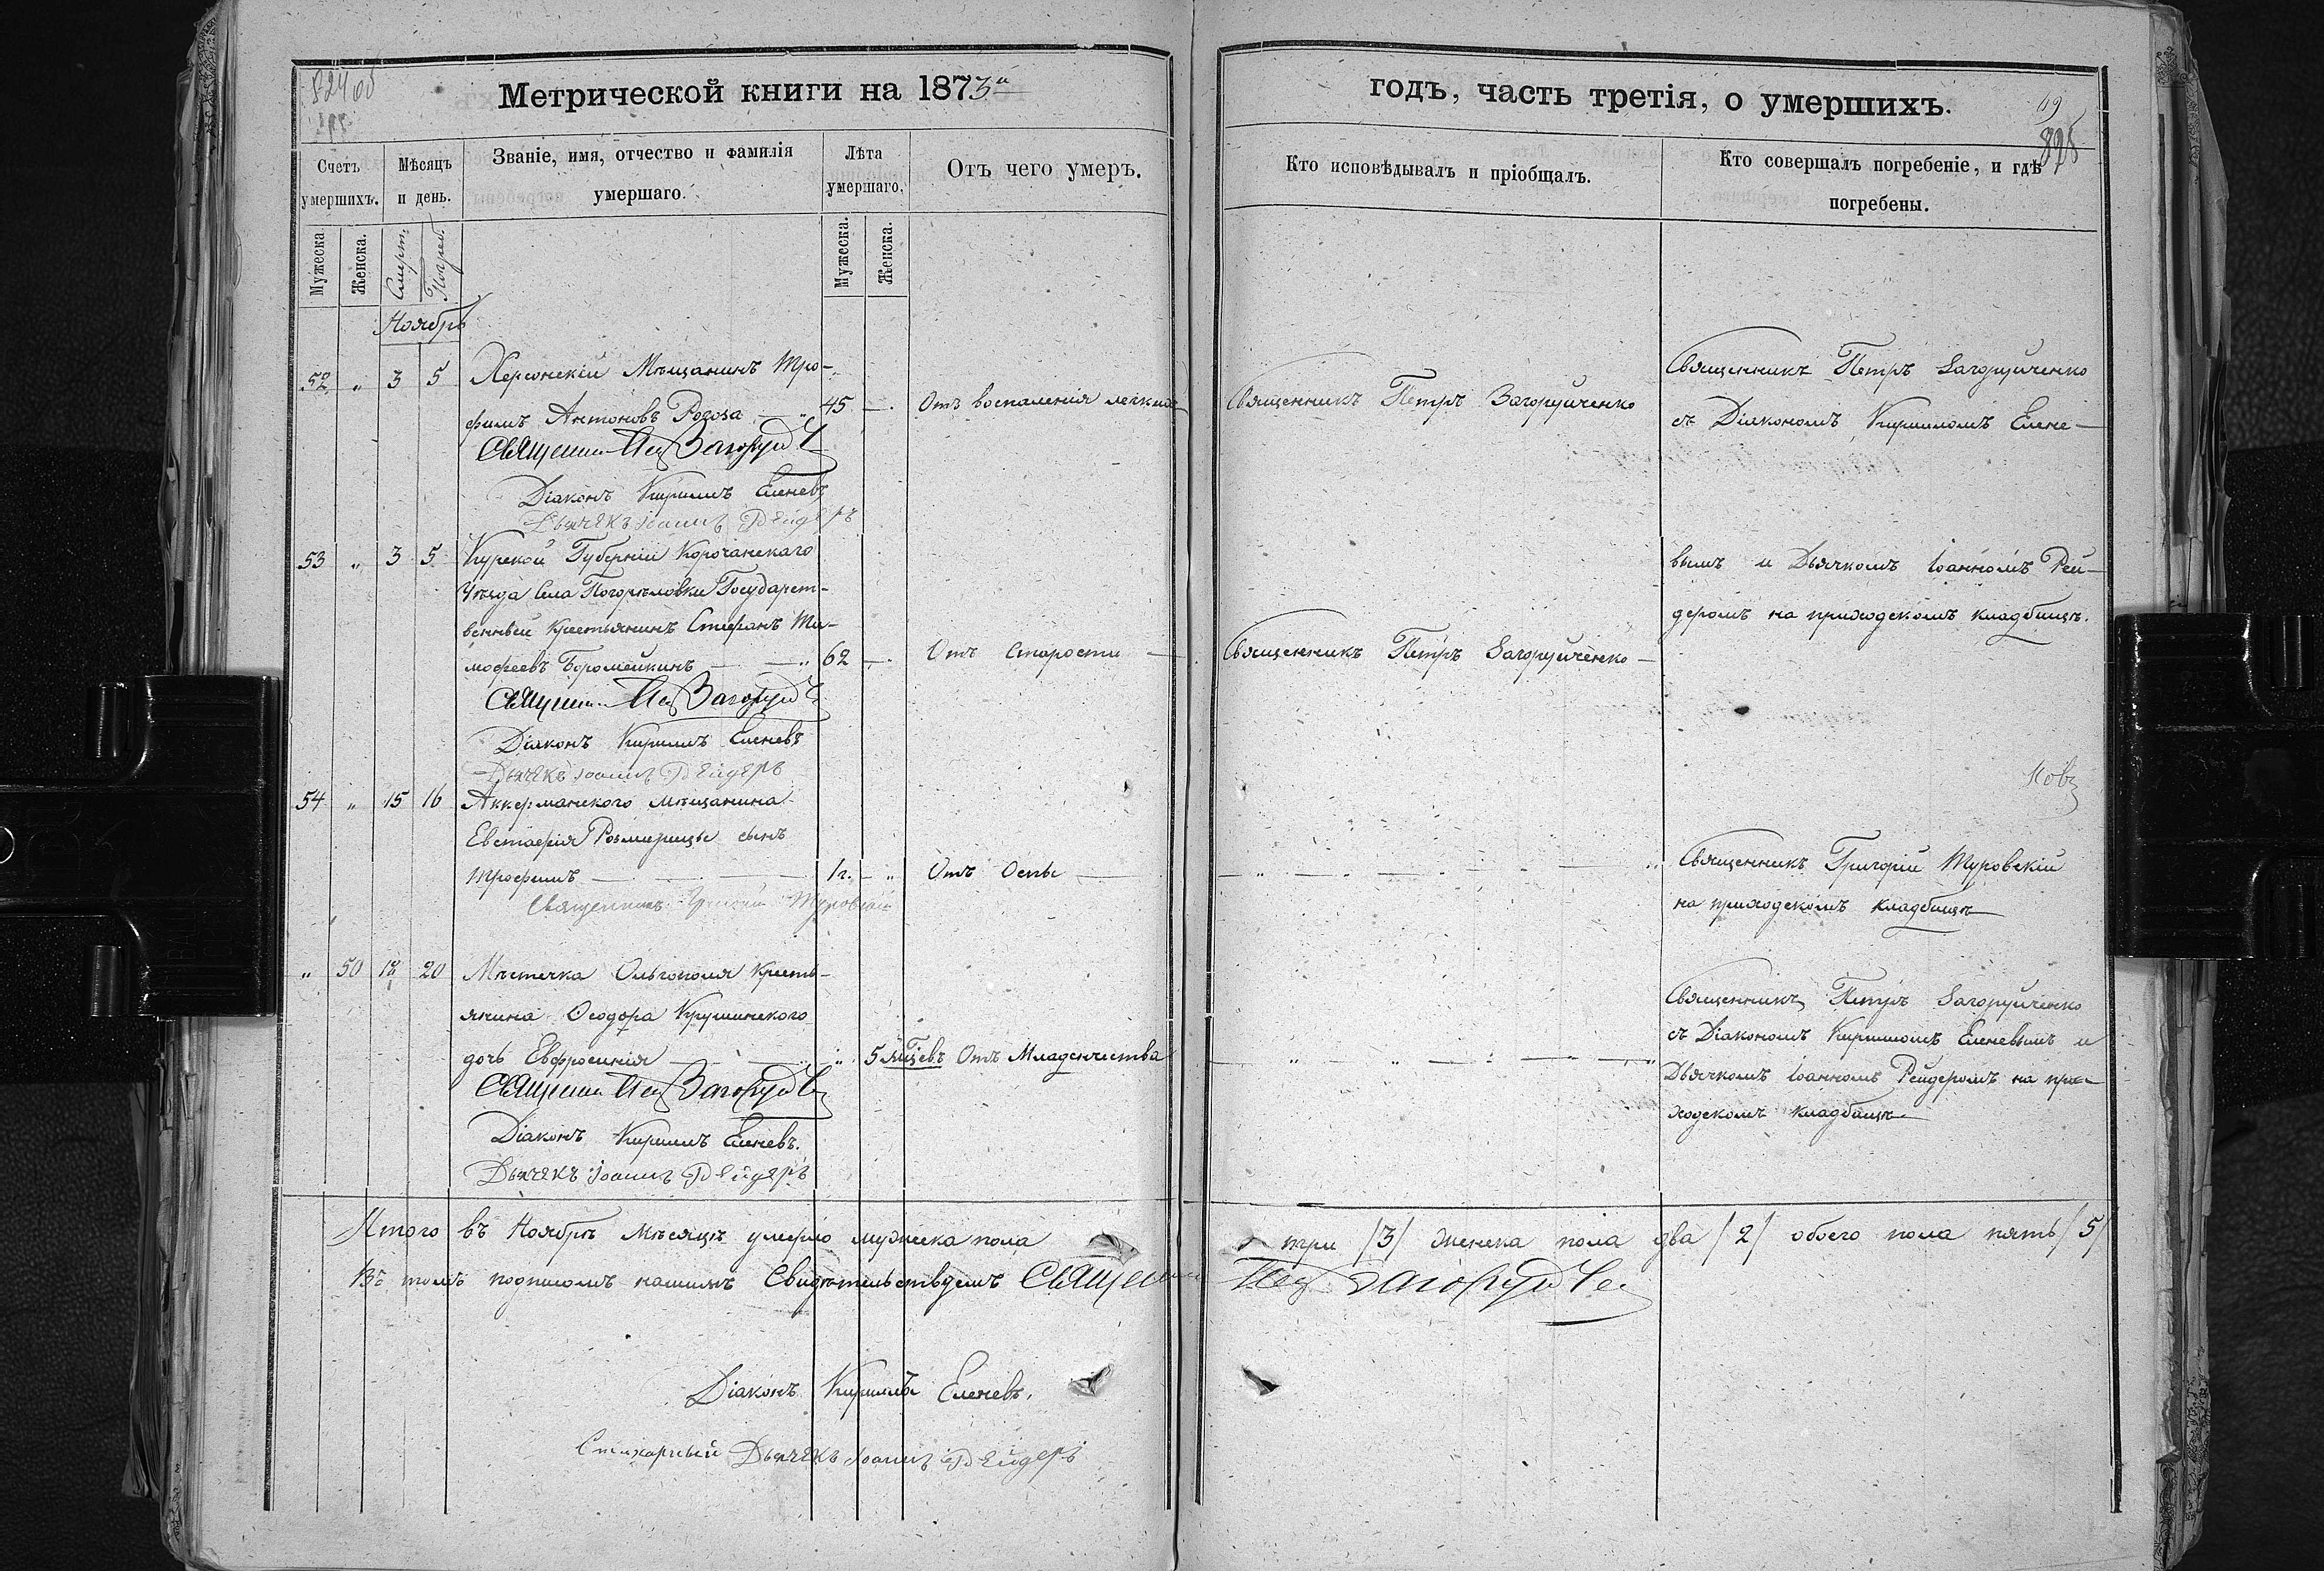 Метрической книги на 1873й
годъ, часть третія, о умершихъ.
69
Счетъ умершихъ.
Мѣсяцъ и день.
Званіе, имя, отчество и фамилія умершаго.
Лѣта умершаго.
Отъ чего умеръ.
Кто исповѣдывалъ и пріобщалъ.
Кто совершалъ погребеніе, и гдѣ погребены.
Мужеска.
Женска.
Смерт.
Погреб.
Мужеска.
Женска.
Ноябрь
52 " 3 5 Херсонскій Мѣщанинъ Тро-
фимъ Антоновъ Рогоза 45 Отъ воспаленія легкихъ Священникъ Петръ Загоруйченко
Священникъ Петръ Загоруйченко
съ Діакономъ Кирилломъ Елене-
Священ. Петр Загоруйч
Діаконъ Кириллъ Еленевъ
Дьячекъ Іоаннъ Рейдеръ
53 " 3 5 Курской Губерніи Корочанскаго
Уѣзда Села Погорѣловки Государст-
венный Крестьянинъ Стефанъ Ти-
мофеевъ Боромейкинъ 62 Отъ Старости Священникъ Петръ Загоруйченко
вымъ и Дьячкомъ Іоанномъ Рей-
деромъ на приходскомъ кладбищѣ.
Священ. Петр Загоруйч
Діаконъ Кириллъ Еленевъ
Дьячекъ Іоаннъ Рейдеръ
54 " 15 16 Аккерманского мѣщанина
Евстафія Розмерицы сынъ
Трофимъ 1г. " Отъ Оспы
Священникъ Григорій Туровскій
на приходскомъ кладбищѣ
Священникъ Григорій Туровскій
" 50 18 20 Мѣстечка Ольгополя Кресть-
янина Ѳеодора Крушинского
дочь Евфросинія " 5 мѣсяцевъ Отъ Младенчества
Священникъ Петръ Загоруйченко
съ Діакономъ Кирилломъ Еленевымъ и
Дьячкомъ Іоанномъ Рейдеромъ на при-
ходскомъ кладбищѣ
Священ. Петр Загоруйч
Діаконъ Кириллъ Еленевъ.
Дьячекъ Іоаннъ Рейдеръ
Итого въ Ноябрѣ Мѣсяцѣ умерло мужеска пола три /3/ женска пола два /2/ обоего пола пять /5/
Въ томъ подписомъ нашимъ Свидѣтельствуемъ Священ Петр Загоруйче
Діаконъ Кириллъ Еленевъ.
Стихарный Дьячекъ Іоаннъ Рейдеръ